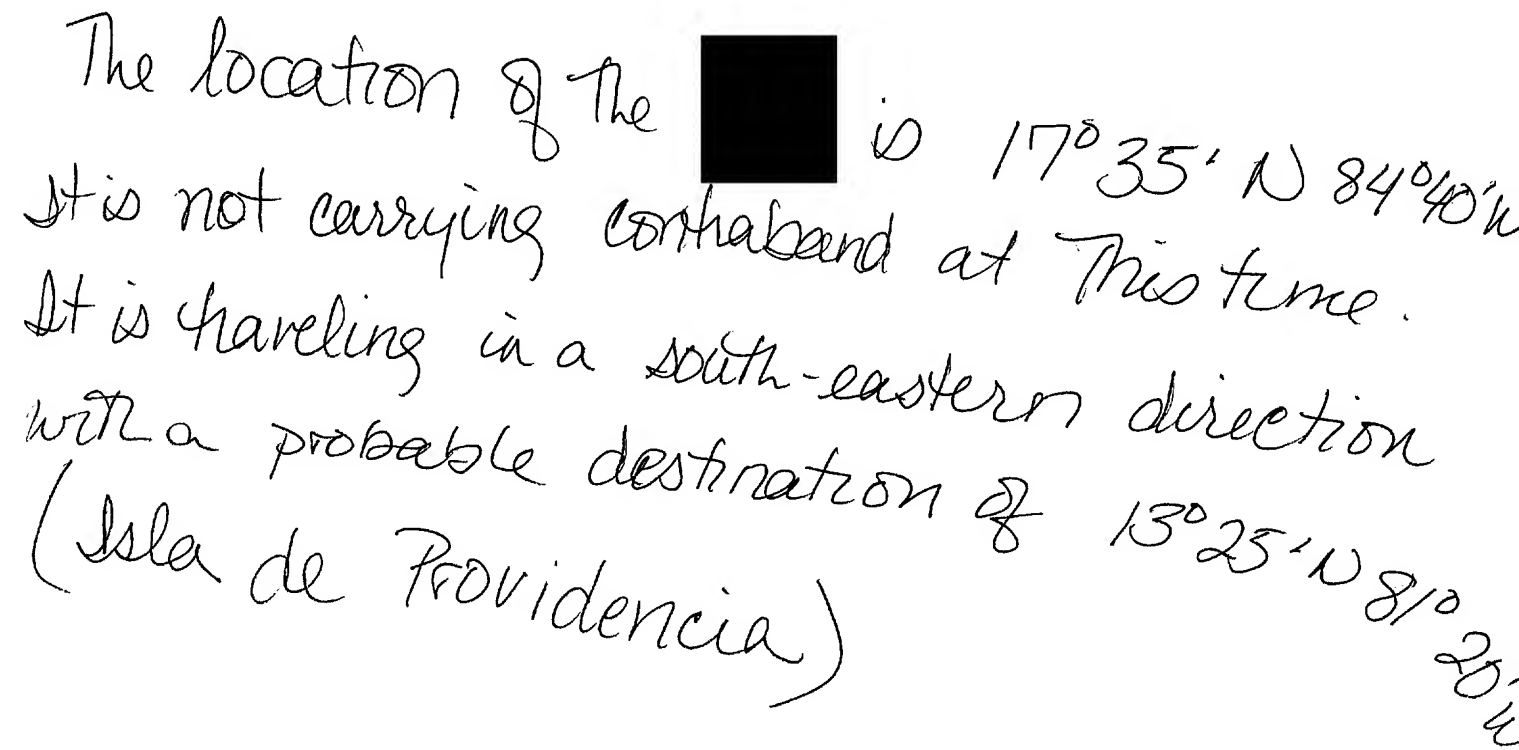 The location of the is 17° 35' N 84°40'W
It is not carrying contraband at This time.
It is traveling in a south-eastern direction
with a probable destination of 13° 25' N 81° 20'W
(Isla de Providencia)